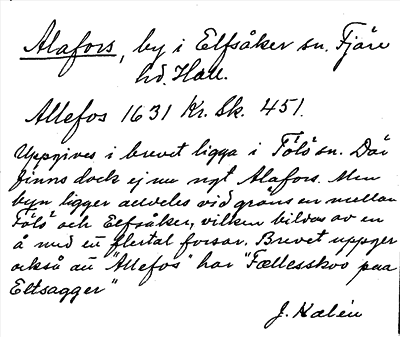 Alafors, by i Elfsåker sn. Fjäre
hd. Hall.
Allefos 1631 Kr. Sk. 451.
Uppgives i brevet ligga i Tölö sn. Där
finns dock ej nu ngt Alafors. Men
byn ligger alldeles vid gränsen mellan
Tölö och Elfsåker, vilken bildas av en
å med ett flertal forsar. Brevet uppger
också att "Allefos" har "Fællesskov paa
Eltsagger"
J. Kalén